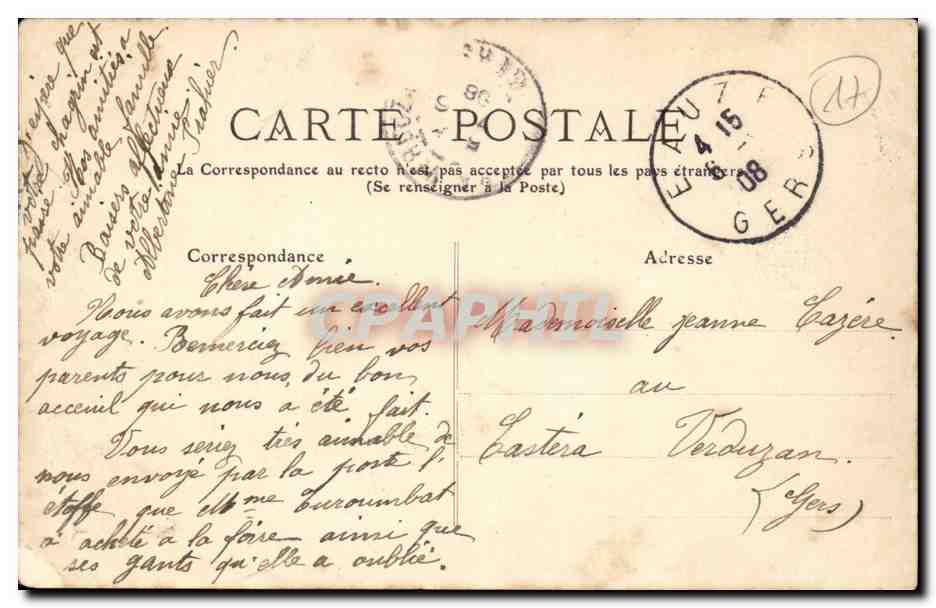 CARTE POSTALE
La Correspondance au recto n'est pas acceptée par tous les pays étrangers
(Se renseigner à la Poste)
EAUZE
4 15
6
08
GERS
17
Correspondance
Chère Amie.
Nous avons fait un excellent
voyage. Remerciez bien vos
parents pour nous, du bon
acceuil qui nous a été fait.
Vous seriez très aimable de
nous envoyé par la poste l'
étoffe que Mme Touroumbat
a acheté a la foire ainsi que
ses gants qu'elle a oublié.
J'espère que
votre chagrin est
passé. Nos amitiés a
votre aimable famille.
Baisers affectueux
de votre amie
Albertine
Adresse
Mademoiselle Jeanne Cazère.
au
Castéra Verduzan.
(Gers)
CPAPHIL